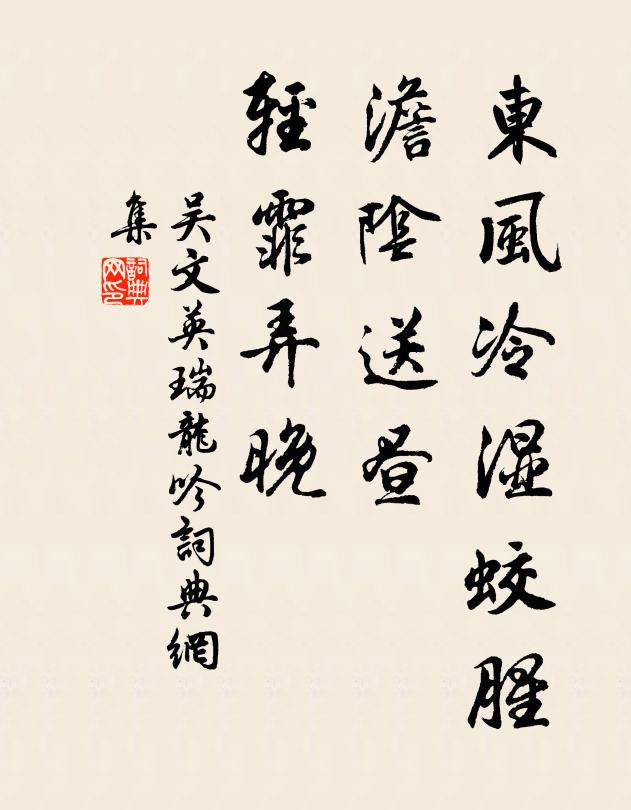 東風冷濕蛟腥
澹陰送昼
輕霏弄晚
吴文英瑞龍吟詞典網
集
詞典
网印